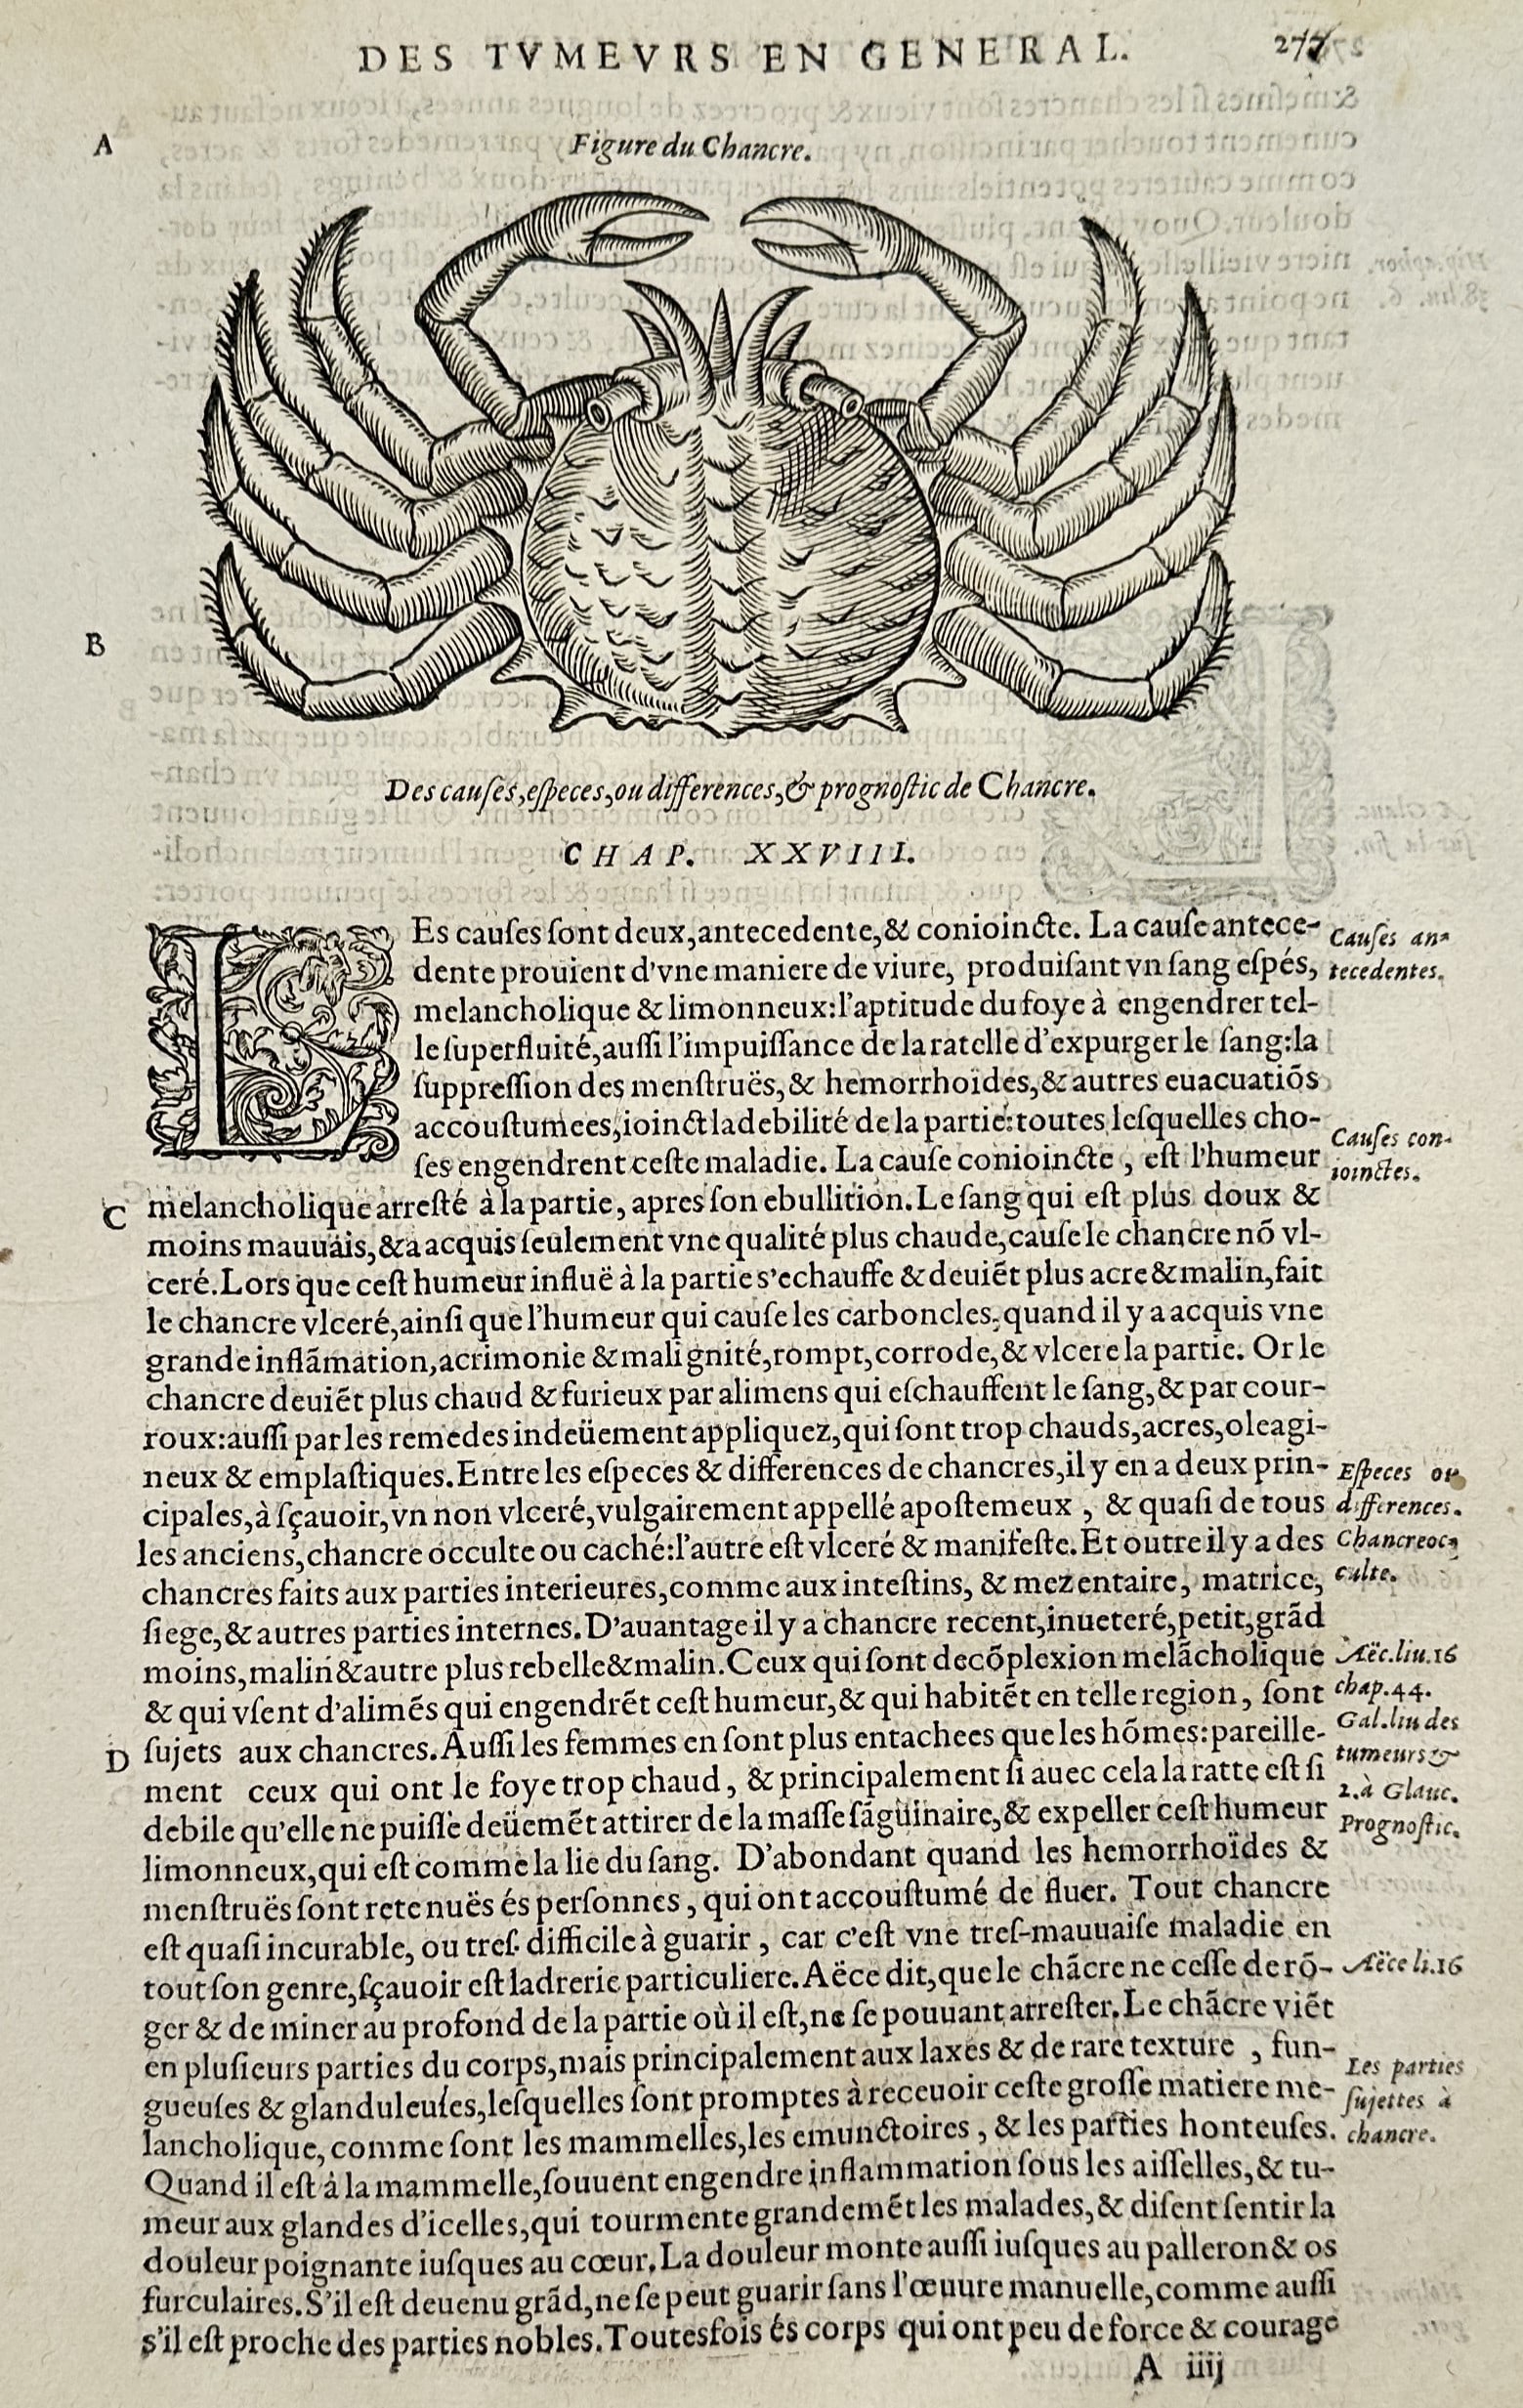 DES TVMEVRS EN GENERAL. 277
A
Figure du Chancre.
B
Des cauſes, eſpeces, ou differences, & prognoſtic de Chancre.
CHAP. XXVIII.
LEs cauſes ſont deux, antecedente, & conioincte. La cauſe antece-
dente prouient d'vne maniere de viure, produiſant vn ſang eſpés,
melancholique & limonneux: l'aptitude du foye à engendrer tel-
le ſuperfluité, auſſi l'impuiſſance de la ratelle d'expurger le ſang: la
ſuppreſſion des menſtruës, & hemorrhoides, & autres euacuatiõs
accouſtumees, ioinct la debilité de la partie: toutes leſquelles cho-
ſes engendrent ceſte maladie. La cauſe conioincte, eſt l'humeur
Cauſes an-
tecedentes.
Cauſes con-
ioinctes.
C
melancholique arreſté à la partie, apres ſon ebullition. Le ſang qui eſt plus doux &
moins mauuais, & a acquis ſeulement vne qualité plus chaude, cauſe le chancre nõ vl-
ceré. Lors que ceſt humeur influë à la partie s'echauffe & deuiẽt plus acre & malin, fait
le chancre vlceré, ainſi que l'humeur qui cauſe les carboncles, quand il y a acquis vne
grande inflãmation, acrimonie & malignité, rompt, corrode, & vlcere la partie. Or le
chancre deuiẽt plus chaud & furieux par alimens qui eſchauffent le ſang, & par cour-
roux: auſſi par les remedes indeüement appliquez, qui ſont trop chauds, acres, oleagi-
neux & emplaſtiques. Entre les eſpeces & differences de chancres, il y en a deux prin-
cipales, à ſçauoir, vn non vlceré, vulgairement appellé apoſtemeux, & quaſi de tous
les anciens, chancre occulte ou caché: l'autre eſt vlceré & manifeſte. Et outre il y a des
chancres faits aux parties interieures, comme aux inteſtins, & mezentaire, matrice,
ſiege, & autres parties internes. D'auantage il y a chancre recent, inueteré, petit, grãd
moins, malin & autre plus rebelle & malin. Ceux qui ſont de cõplexion melãcholique
& qui vſent d'alimẽs qui engendrẽt ceſt humeur, & qui habitẽt en telle region, ſont
Eſpeces ou
differences.
Chancre oc-
culte.
Aëc. liu. 16
chap. 44.
Gal. liu des
tumeurs &
2. à Glauc.
Prognoſtic.
D
ſujets aux chancres. Auſſi les femmes en ſont plus entachees que les hõmes: pareille-
ment ceux qui ont le foye trop chaud, & principalement ſi auec cela la ratte eſt ſi
debile qu'elle ne puiſſe deüemẽt attirer de la maſſe ſãguinaire, & expeller ceſt humeur
limonneux, qui eſt comme la lie du ſang. D'abondant quand les hemorrhoïdes &
menſtruës ſont retenuës és perſonnes, qui ont accouſtumé de fluer. Tout chancre
eſt quaſi incurable, ou treſ-difficile à guarir, car c'eſt vne treſ-mauuaiſe maladie en
tout ſon genre, ſçauoir eſt ladrerie particuliere. Aëce dit, que le chãcre ne ceſſe de rõ-
ger & de miner au profond de la partie où il eſt, ne ſe pouuant arreſter. Le chãcre viẽt
en pluſieurs parties du corps, mais principalement aux laxes & de rare texture, fun-
gueuſes & glanduleuſes, leſquelles ſont promptes à receuoir ceſte groſſe matiere me-
lancholique, comme ſont les mammelles, les emunctoires, & les parties honteuſes.
Quand il eſt à la mammelle, ſouuent engendre inflammation ſous les aiſſelles, & tu-
meur aux glandes d'icelles, qui tourmente grandemẽt les malades, & diſent ſentir la
douleur poignante iuſques au cœur. La douleur monte auſſi iuſques au palleron & os
furculaires. S'il eſt deuenu grãd, ne ſe peut guarir ſans l'œuure manuelle, comme auſſi
s'il eſt proche des parties nobles. Toutesfois és corps qui ont peu de force & courage
Aëce li. 16
Les parties
ſujettes à
chancre.
A iiij